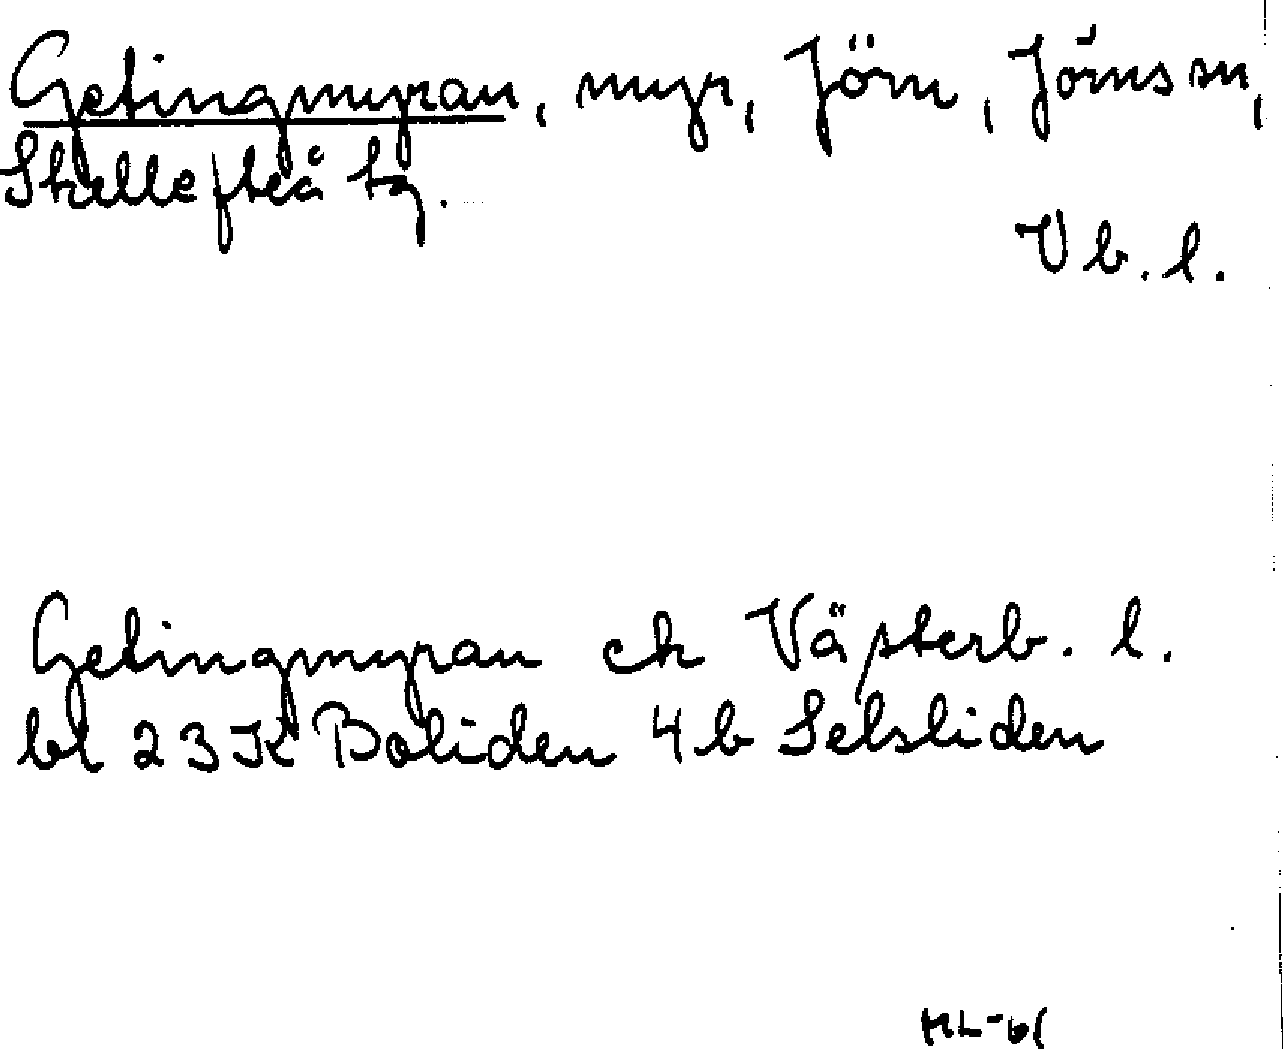 Getingmyran, myr, Jörn, Jörns sn,
Skellefteå tg.
Vb. l.
Getingmyran ek Västerb. l.
bl 23K Boliden 4b Selsliden
ML-61